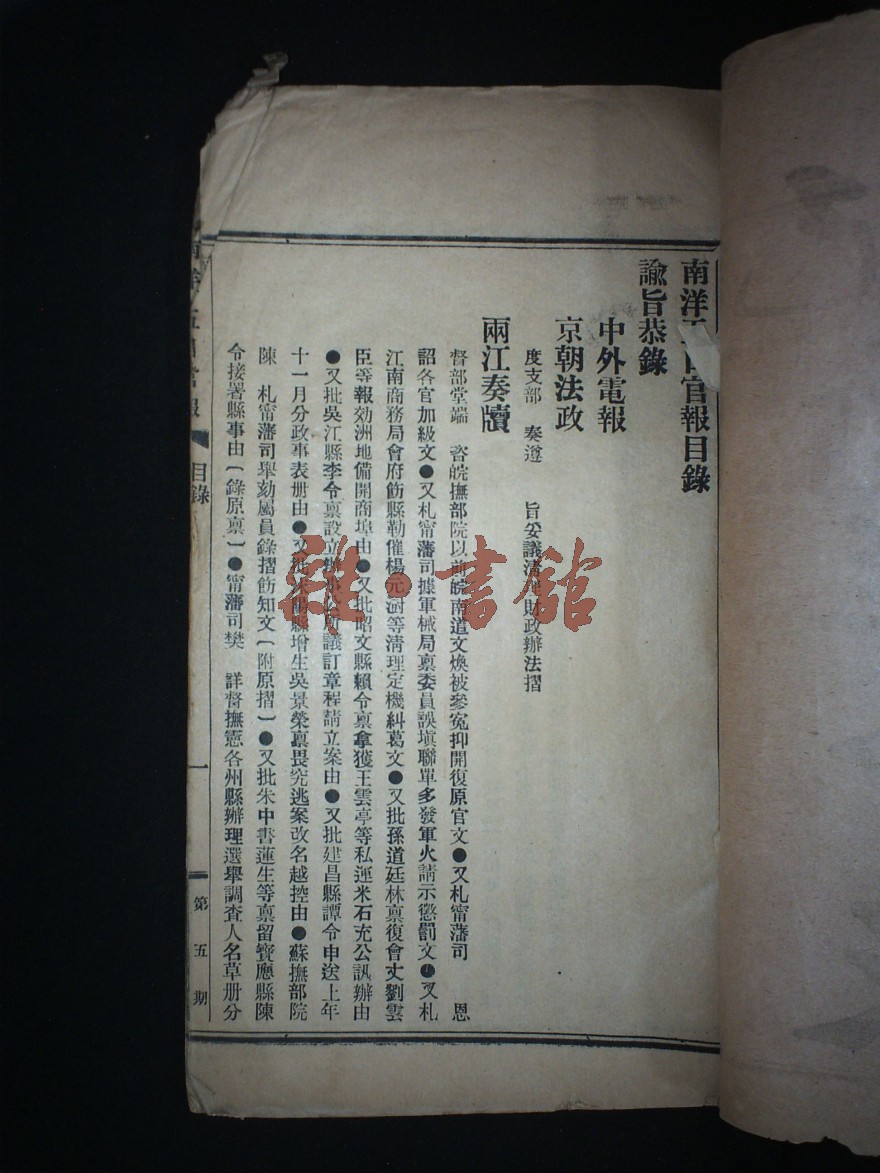 南洋五日官報目錄
諭旨恭錄
中外電報
京朝法政
度支部　奏遵　旨妥議清理財政辦法摺
兩江奏牘
督部堂端　咨皖撫部院以前皖南道文煥被參冤抑開復原官文●又札甯藩司　恩
詔各官加級文●又札甯藩司據軍械局稟委員誤塡聯單多發軍火請示懲罰文●又札
江南商務局會府飭縣勒催楊元澍等清理定機糾葛文●又批孫道廷林稟復會丈劉雲
臣等報効洲地備開商埠由●又批昭文縣賴令稟拿獲王雲亭等私運米石充公訊辦由
●又批吳江縣李令稟設立公所議訂章程請立案由●又批建昌縣譚令申送上年
十一月分政事表册由●又批縣增生吳景榮稟畏究逃案改名越控由●蘇撫部院
陳　札甯藩司舉劾屬員錄摺飭知文（附原摺）●又批朱中書蓮生等稟留寶應縣陳
令接署縣事由（錄原稟）●甯藩司樊　詳督撫憲各州縣辦理選舉調查人名草册分
南洋五日官報
目錄
一
第五期
雜·書館